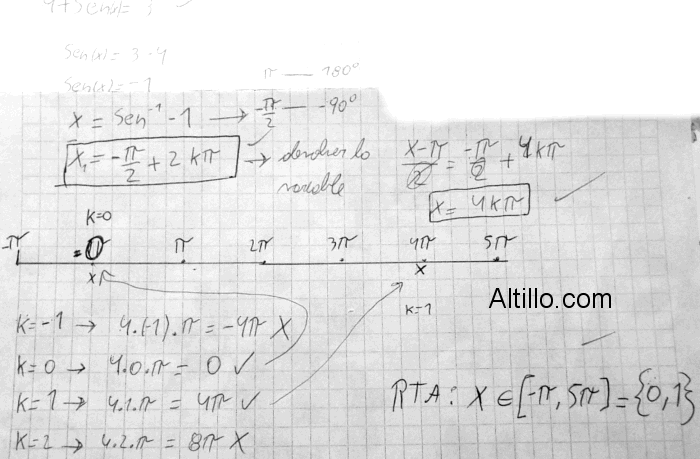 4+sen(x)= 3
sen(x)= 3-4
sen(x)= -1
π — 180°
x = sen⁻¹ -1 → -π/2 — -90°
x₁ = -π/2 + 2kπ → devolver la variable
(x-π)/2 = -π/2 + 4kπ
x = 4kπ
k=0
-π = 0 π 2π 3π 4π 5π
x x
k=1
Altillo.com
k= -1 → 4.(-1).π = -4π X
k= 0 → 4.0.π = 0 ✓
k= 1 → 4.1.π = 4π ✓
k= 2 → 4.2.π = 8π X
RTA: X ∈ [-π, 5π] = {0,1}